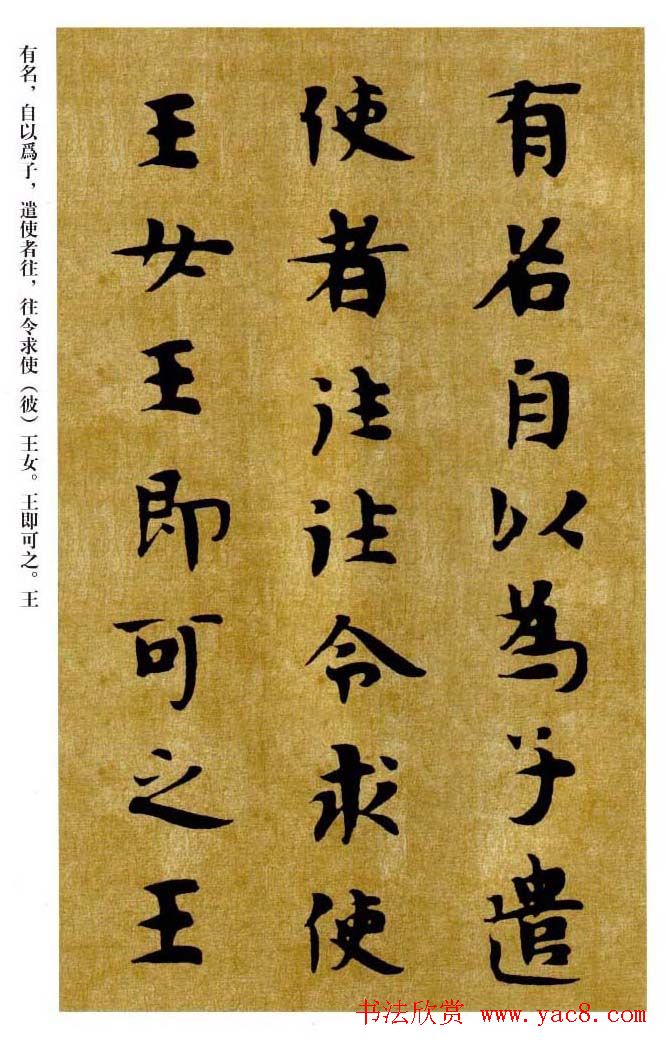 有名自以為子遣
使者往往令求使
王女王即可之王
有名，自以爲子，遣使者往，往令求使（彼）王女。王即可之。王
书法欣赏 www.yac8.com